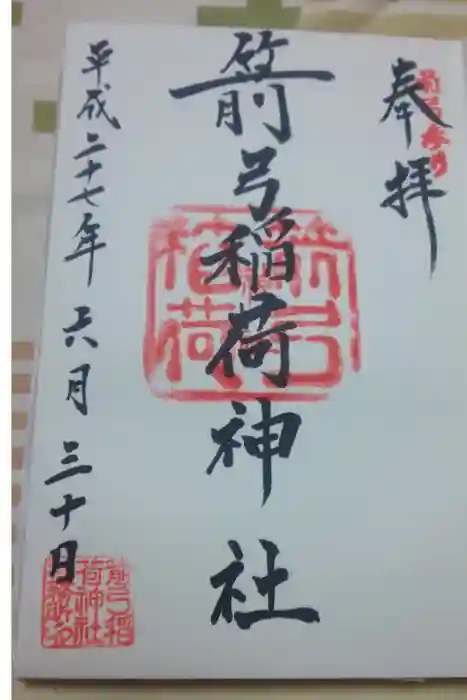 奉拝
箭弓稲荷神社
箭弓稲荷
平成二十七年 六月 三十日